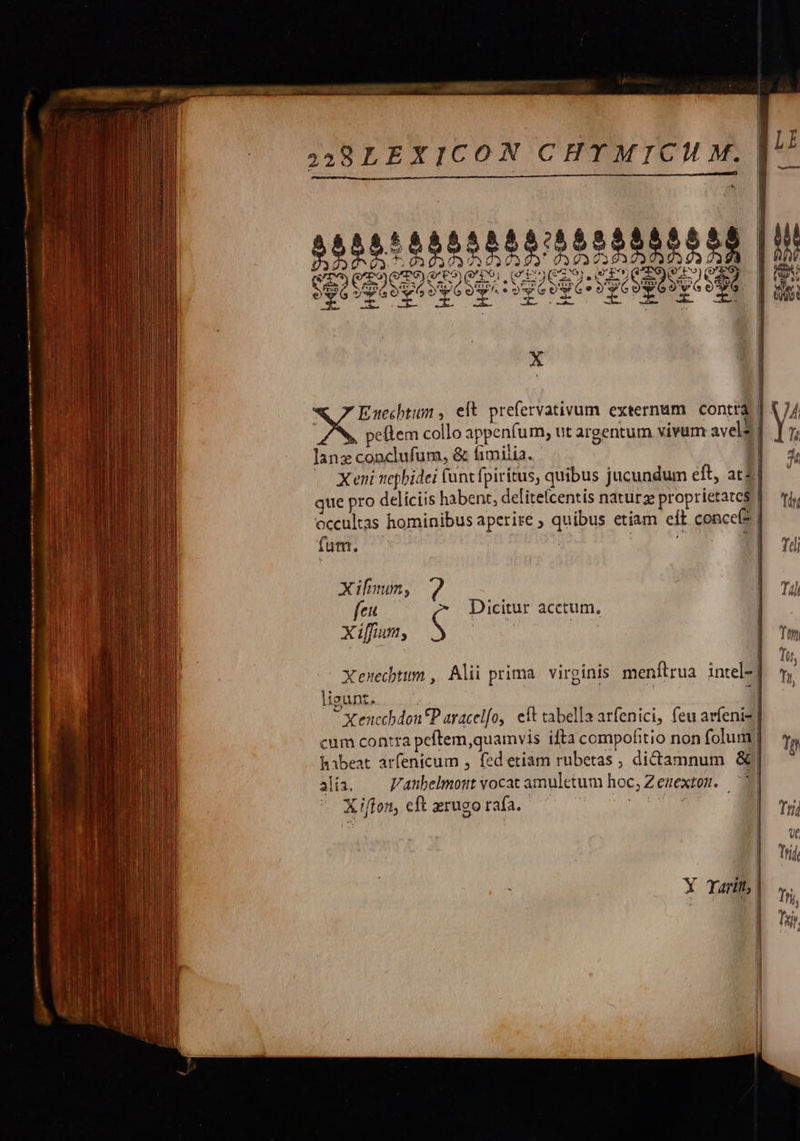 228 LEXICON CHYMICUM.
X
XEnechtum, eſt preſervativum externum contra
peſtem collo appenſum, ut argentum vivum avel-
lanæ concluſum, & ſimilia.
Xeni nephidei ſunt ſpiritus, quibus jucundum eſt, at-
que pro deliciis habent, deliteſcentis naturæ proprietates
occultas hominibus aperire, quibus etiam eſt conceſ-
ſum.
Xiſinum,
ſeu Dicitur acetum.
Xiſſium,
Xenechtum, Alii prima virginis menſtrua intel-
ligunt.
Xenechdon Paracelſo, eſt tabella arſenici, ſeu arſeni-
cum contra peſtem, quamvis iſta compoſitio non ſolum
habeat arſenicum, ſed etiam rubetas, dictamnum &
alia. Vanhelmont vocat amuletum hoc, Zenexton.
Xiſton, eſt ærugo raſa.
Y Yarin,
LE